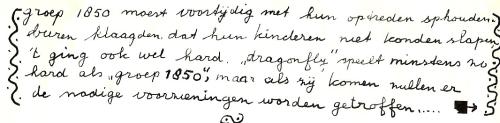 groep 1850 moest voortijdig met hun optreden ophouden.
buren klaagden dat hun kinderen niet konden slapen
't ging ook wel hard. "dragonfly" speelt minstens zo
hard als "groep 1850", maar als zij komen zullen er
de nodige voorzieningen worden getroffen.....